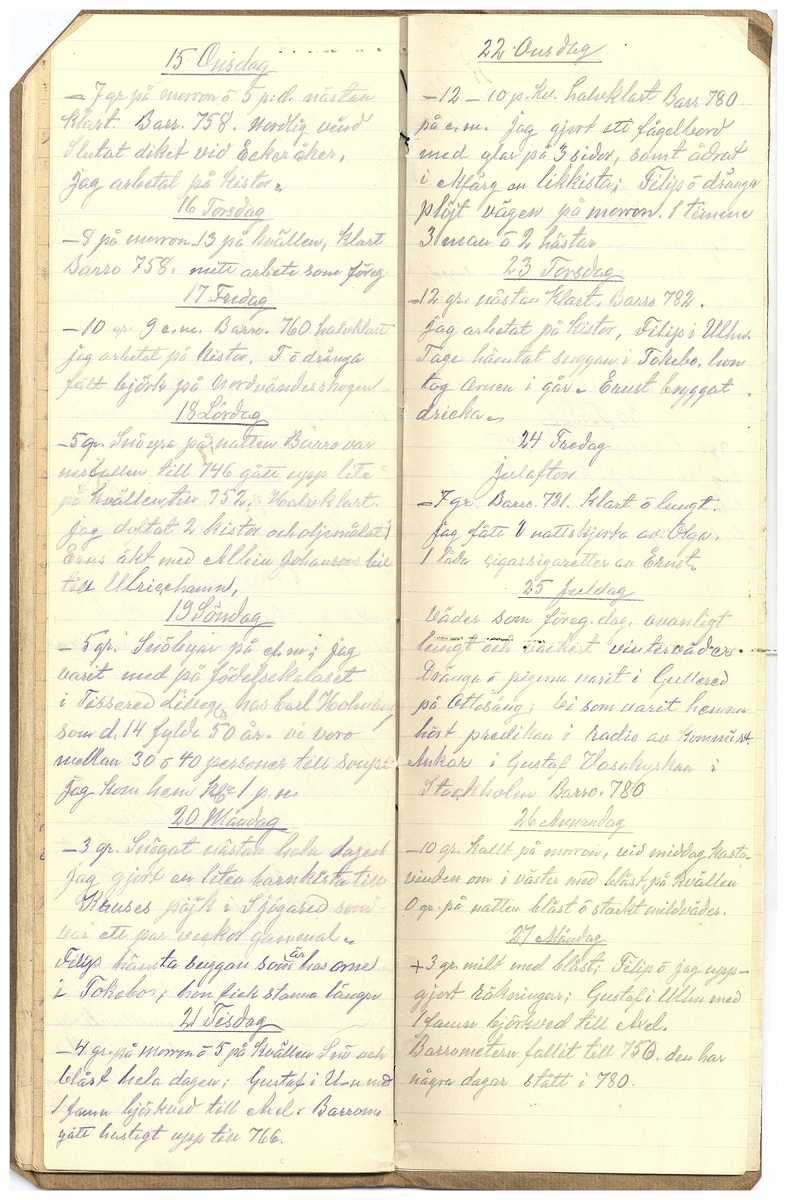 15 Onsdag
- 7 gr. på morron ö 5 p.d. nästan
klart. Barr. 758. nordlig vind
Slutat diket vid Ecker åker.
Jag arbetat på kistor.
16 Torsdag
- 8 på morron - 13 på kvällen, klart
Barro 758. mitt arbete som föreg.
17 Fredag
- 10 gr. 9 e.m. Barro. 760 halvklart
jag arbetat på kistor. F ö dränga
kört björk på Nordvändesskogen
18 Lördag
- 5 gr. Snöyra på natten Barro var
nerfallen till 746 gått upp lite
på kvällen till 752. Halvklart.
Jag doftat 2 kistor och oljemålat 1
Erns åkt med Allein Johansons bil
till Ulricehamn,
19 Söndag
- 5 gr. Snöbyar på e.m; jag
varit med på födelsekalaset
i Tissered hos Carl Holmberg
som d. 14 fylde 50 år. vi voro
mellan 30 ö 40 personer till supé
Jag kom hem kl. 1 p.m.
20 Måndag
- 3 gr. Snögat nästan hela dagen
Jag gjort en liten barnkista till
Kruses pojk i Sjögared som
var ett par veckor gammal.
Filip hämta suggan som är hos orne
i Tokebo; hon fick stanna längre
21 Tisdag
- 4 gr. på morron ö 5 på kvällen Snö och
blåst hela dagen; Gustaf i U-n med
1 famn björkved till Axel. Barrome
gått hastigt upp till 766.
22 Onsdag
- 12 - 10 p. kv. halvklart Barr 780
på e.m. jag gjort ett fågelbord
med glas på 3 sidor, samt ådrat
i ekfärg en likkista; Filip ö dränga
plöjt vägen på morron. 1 timme
3 man ö 2 hästar
23 Torsdag
- 12 gr. nästan klart. Barro 782.
Jag arbetat på kistor, Filip i Ulhn.
Tage hämtat suggan i Tokebo. hon
tog ornen i går. Ernst bryggat
dricka.
24 Fredag
Julafton
- 7 gr. Barro. 781. Klart ö lungt.
Jag fått 1 nattskjorta av Olga.
1 låda cigarrsigaretter av Ernst.
25 Juldag
Väder som föreg. dag. ovanligt
lungt och vackert vinterväder.
Dränga ö pigorna varit i Gullered
på Ottosång; Vi som varit hemma
hört predikan i radio av Kommist.
Ankar i Gustaf Vasakyrkan i
Stockholm Barro. 780
26 Annandag
- 10 gr. kallt på morron, vid middag kasta-
vinden om i väster med blåst, på kvällen
0 gr. på natten blåst ö starkt mildväder.
27 Måndag
+ 3 gr. milt med blåst; Filip ö jag upp-
gjort räkningar; Gustaf i Ulhn med
1 famn björkved till Axel.
Barrometern fallit till 750. den har
några dagar stått i 780.